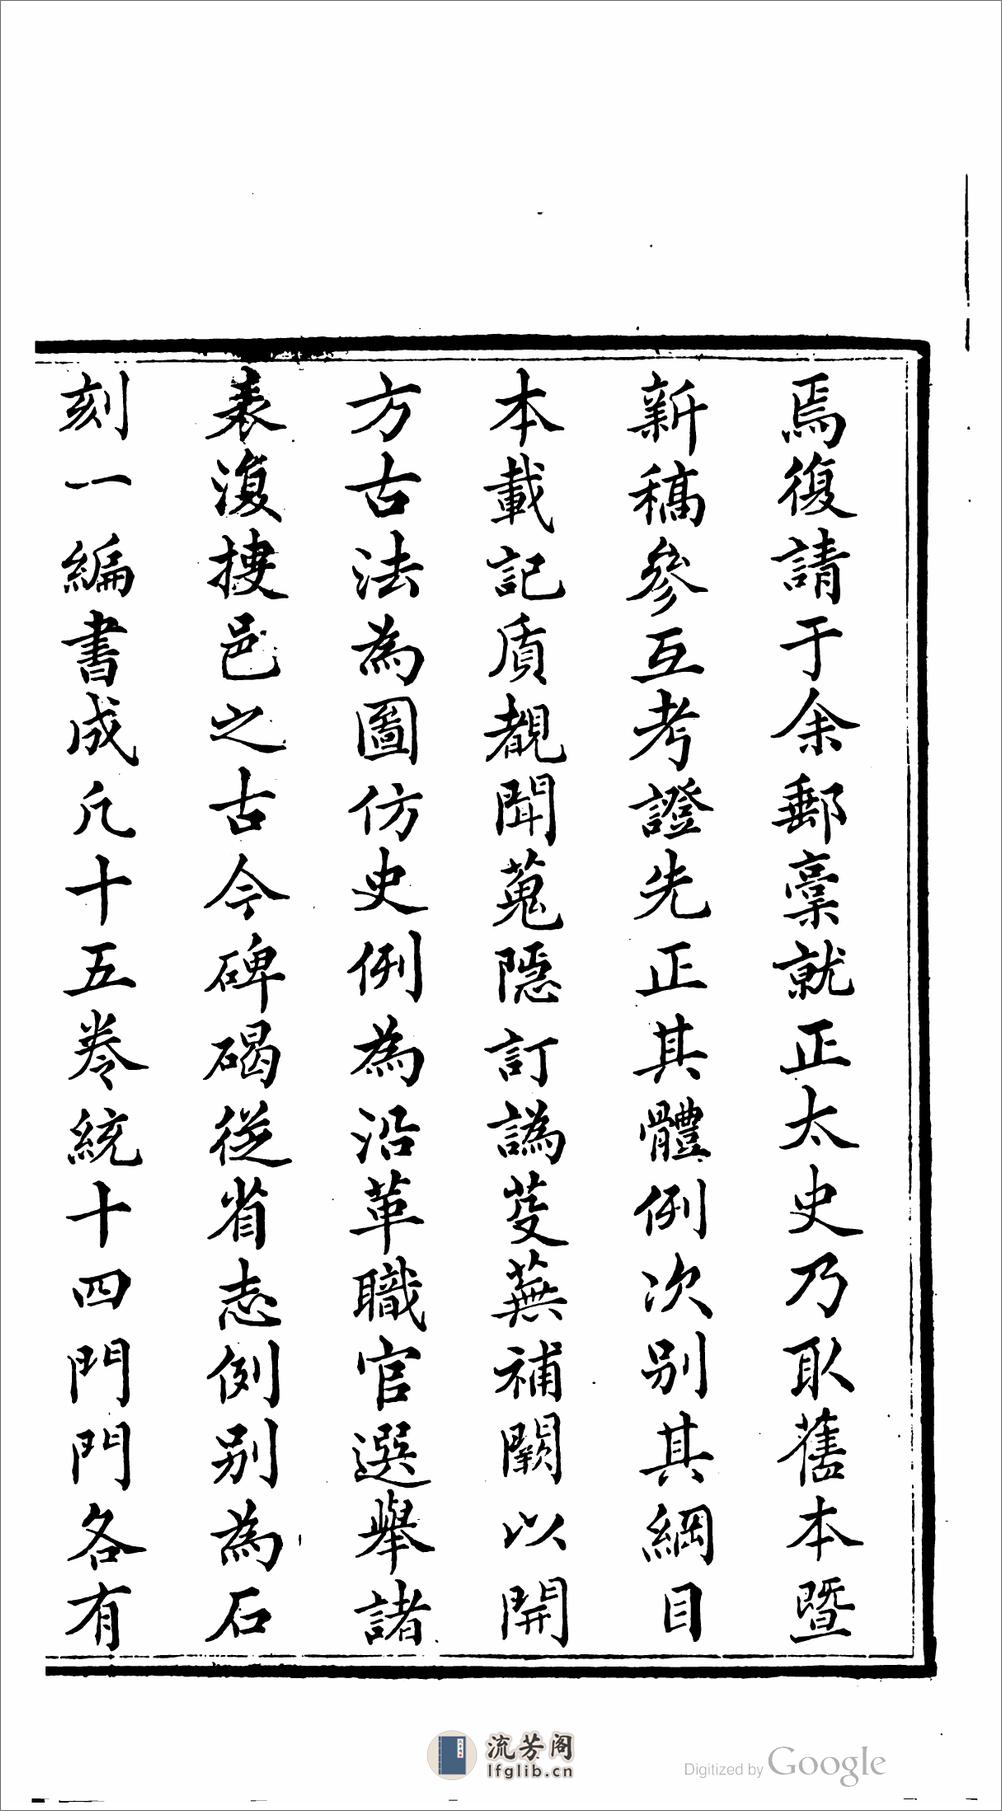 焉復請于余郵稾就正太史乃取舊本暨
新稿參互考證先正其體例次別其綱目
本載記質覩聞蒐隱訂譌芟蕪補闕以開
方古法為圖仿史例為沿革職官選舉諸
表復摉邑之古今碑碣從省志例别為石
刻一編書成凡十五卷統十四門門各有
流芳阁
lfglib.cn
Digitized by Google